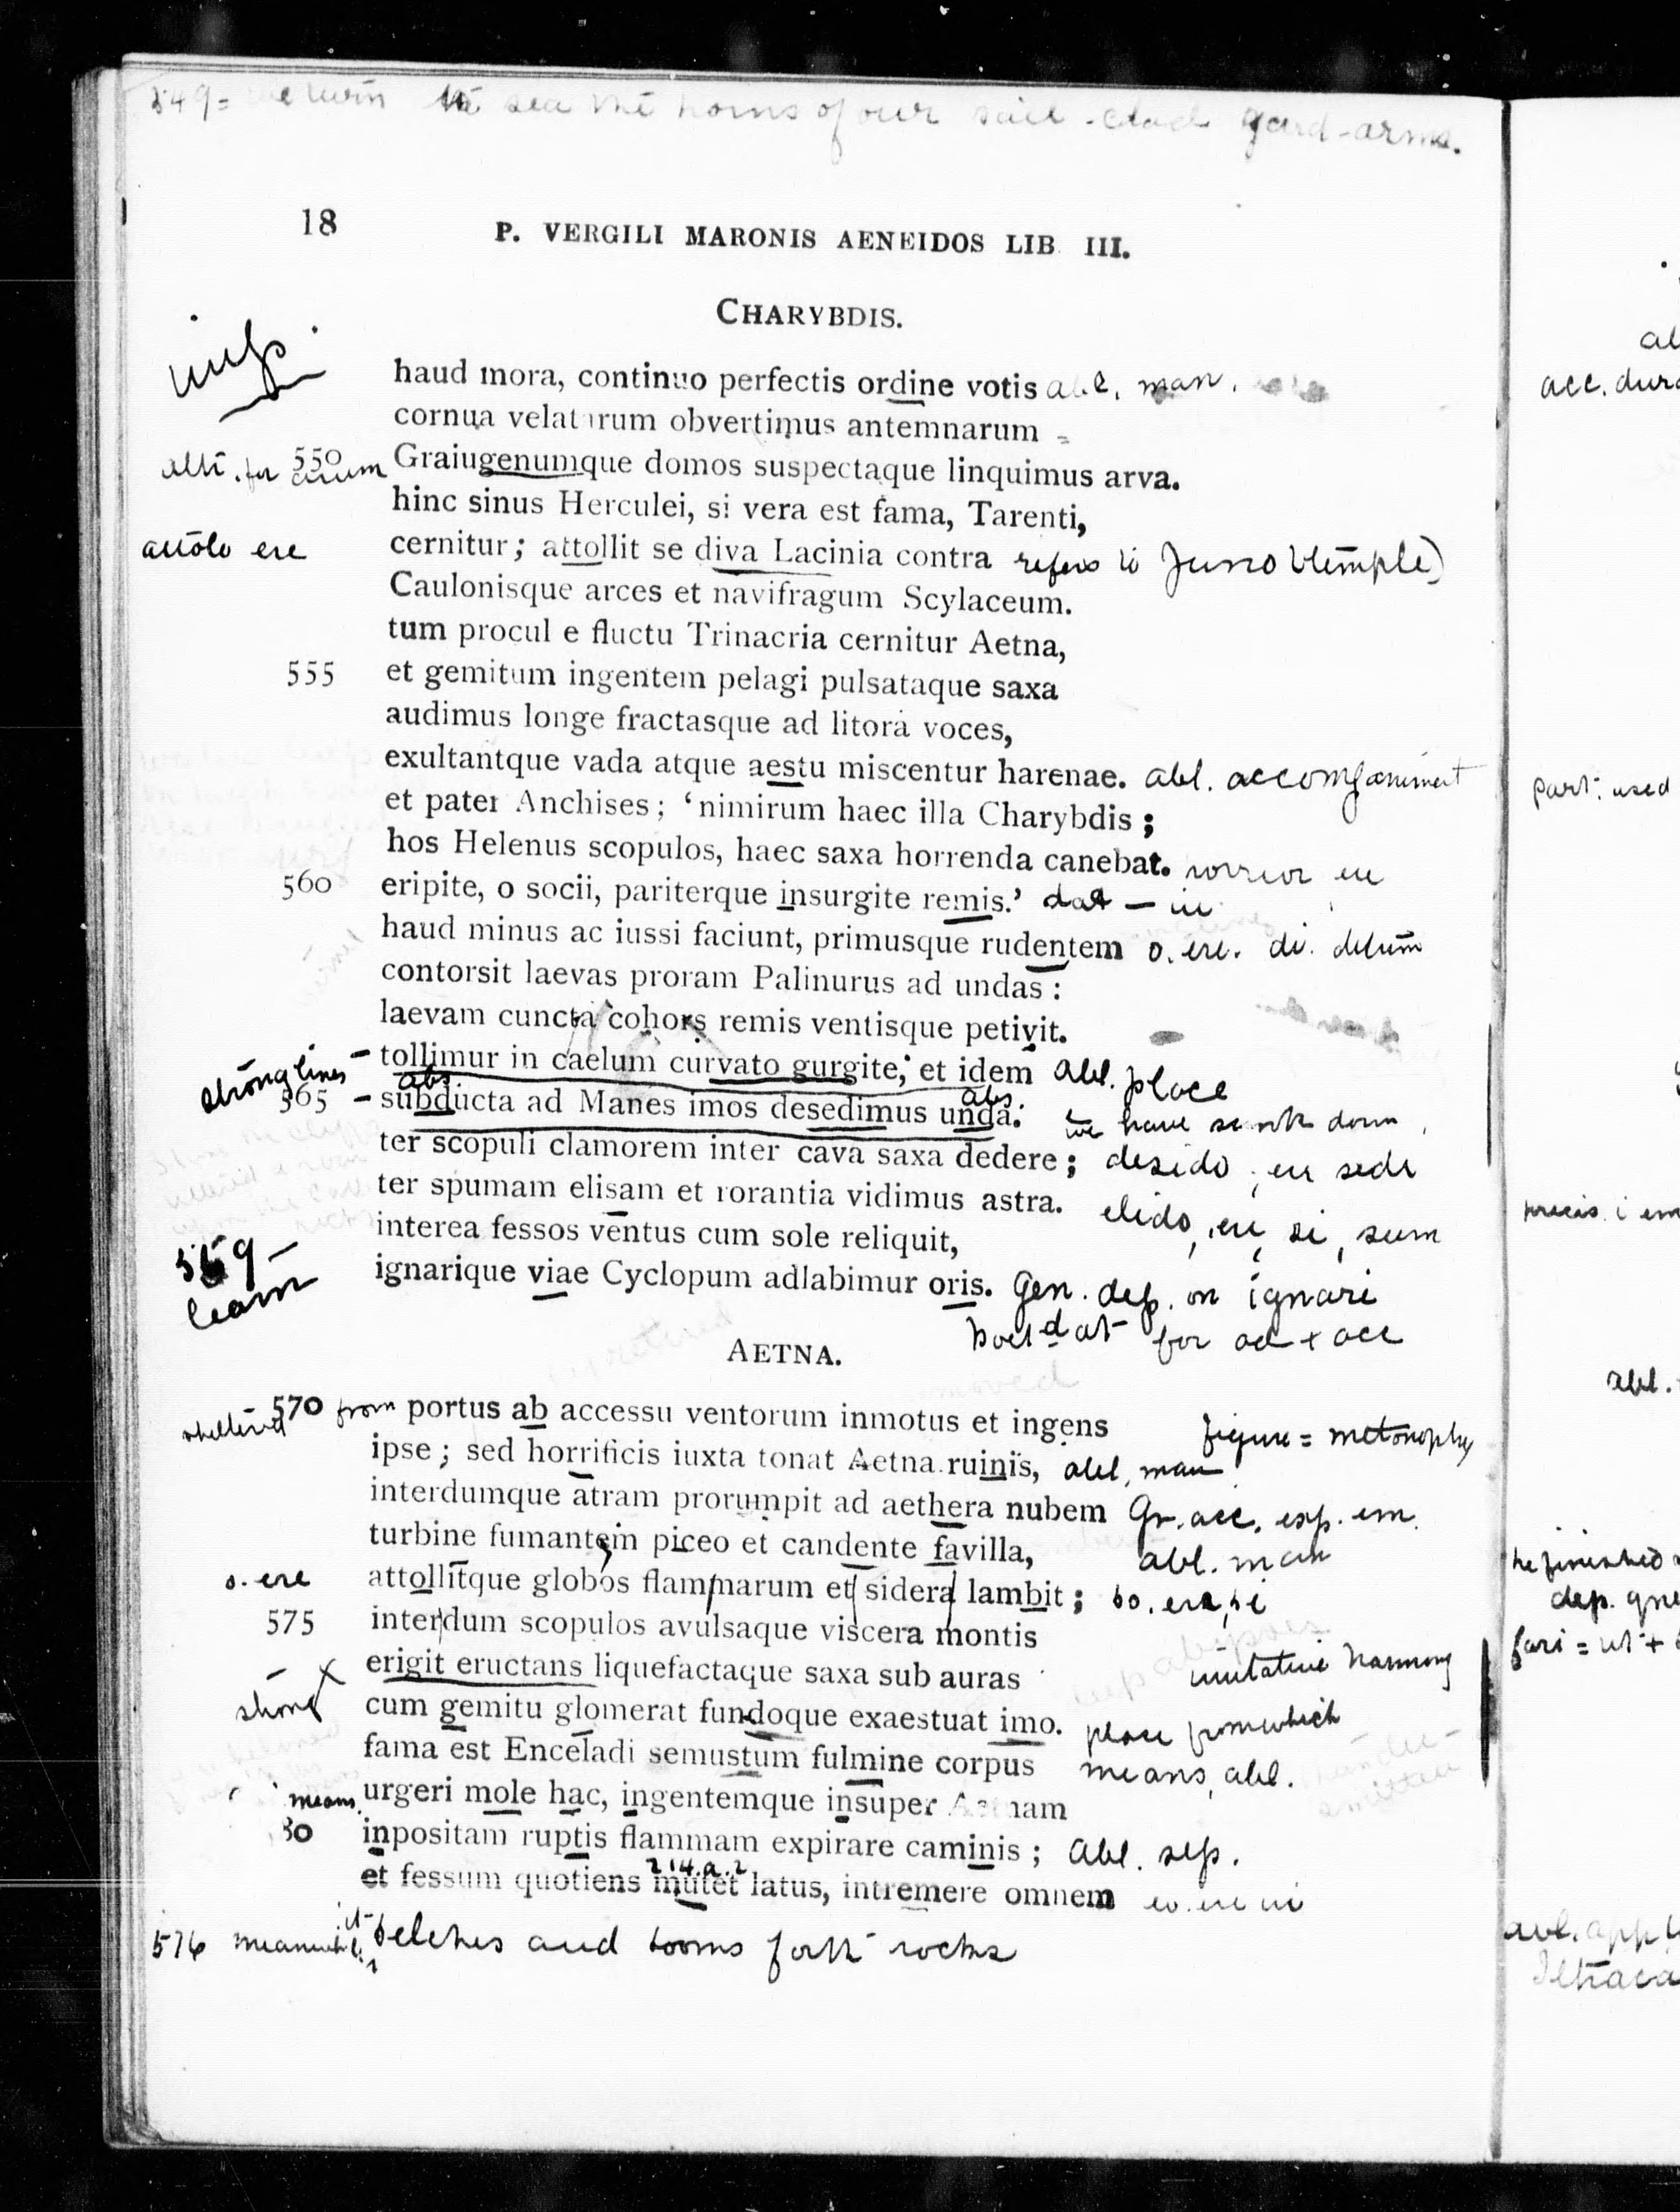 549 = we turn to sea the horns of our sail-clad yard-arms.
18 P. VERGILI MARONIS AENEIDOS LIB. III.
CHARYBDIS.
haud mora, continuo perfectis ordine votis abl. man.
cornua velatarum obvertimus antemnarum
550 Graiugenumque domos suspectaque linquimus arva.
hinc sinus Herculei, si vera est fama, Tarenti,
attolo ere cernitur; attollit se diva Lacinia contra refers to Juno (temple)
Caulonisque arces et navifragum Scylaceum.
tum procul e fluctu Trinacria cernitur Aetna,
555 et gemitum ingentem pelagi pulsataque saxa
audimus longe fractasque ad litora voces,
exultantque vada atque aestu miscentur harenae. abl. accompaniment
et pater Anchises; ‘nimirum haec illa Charybdis;
hos Helenus scopulos, haec saxa horrenda canebat.
560 eripite, o socii, pariterque insurgite remis.’ dat – in
haud minus ac iussi faciunt, primusque rudentem o. ere. di. ditum
contorsit laevas proram Palinurus ad undas:
laevam cuncta cohors remis ventisque petivit.
strong lines – tollimur in caelum curvato gurgite, et idem abl. place
abs. abs.
565 – subducta ad Manes imos desedimus unda: we have sunk down
ter scopuli clamorem inter cava saxa dedere; desido, ere sedi
ter spumam elisam et rorantia vidimus astra. elido, ere, si, sum
interea fessos ventus cum sole reliquit,
569 – learn
ignarique viae Cyclopum adlabimur oris. Gen. dep. on ignari
Poet dat for ad + acc
AETNA.
sheltered 570 from portus ab accessu ventorum inmotus et ingens figure =
ipse; sed horrificis iuxta tonat Aetna ruinis, abl. man
interdumque atram prorumpit ad aethera nubem Gr. acc.
turbine fumantem piceo et candente favilla, abl. man
o. ere attollitque globos flammarum et sidera lambit; bo. ere, bi
575 interdum scopulos avulsaque viscera montis
erigit eructans liquefactaque saxa sub auras imitative harmony
strong cum gemitu glomerat fundoque exaestuat imo. place from which
fama est Enceladi semustum fulmine corpus means, abl.
means urgeri mole hac, ingentemque insuper Aetnam
80 inpositam ruptis flammam expirare caminis; Abl. sep.
214.a.2
et fessum quotiens mutet latus, intremere omnem
576 meanwhile it belches and booms forth rocks
acc.
part. used
abl.
he finished
dep.